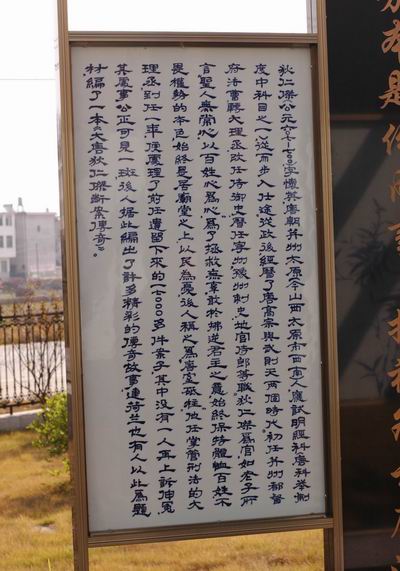 狄仁傑(公元六〇七-七〇〇)字懷英唐朝并州太原(今山西太原市西南)人應試明經科(唐科舉制
度中科目之一)從而步入仕途從政後經歷了唐高宗與武則天兩個時代初任并州都督
府法曹轉大理丞改任侍御史歷任寧州豫州刺史地官侍郎等職狄仁傑為官如老子所
言聖人無常心以百姓心為心為了拯救無辜敢於拂逆君主之意始終保持體恤百姓不
畏權勢的本色始終是居廟堂之上以民為憂後人稱之為唐室砥柱他任掌管刑法的大
理丞到任一年便處理了前任遺留下來的一七〇〇〇多件案子其中沒有一人再上訴伸冤
其處事公正可見一斑後人據此編出了許多精彩的傳奇故事連荷蘭也有人以此為題
材編了一本《大唐狄仁傑斷案傳奇》。